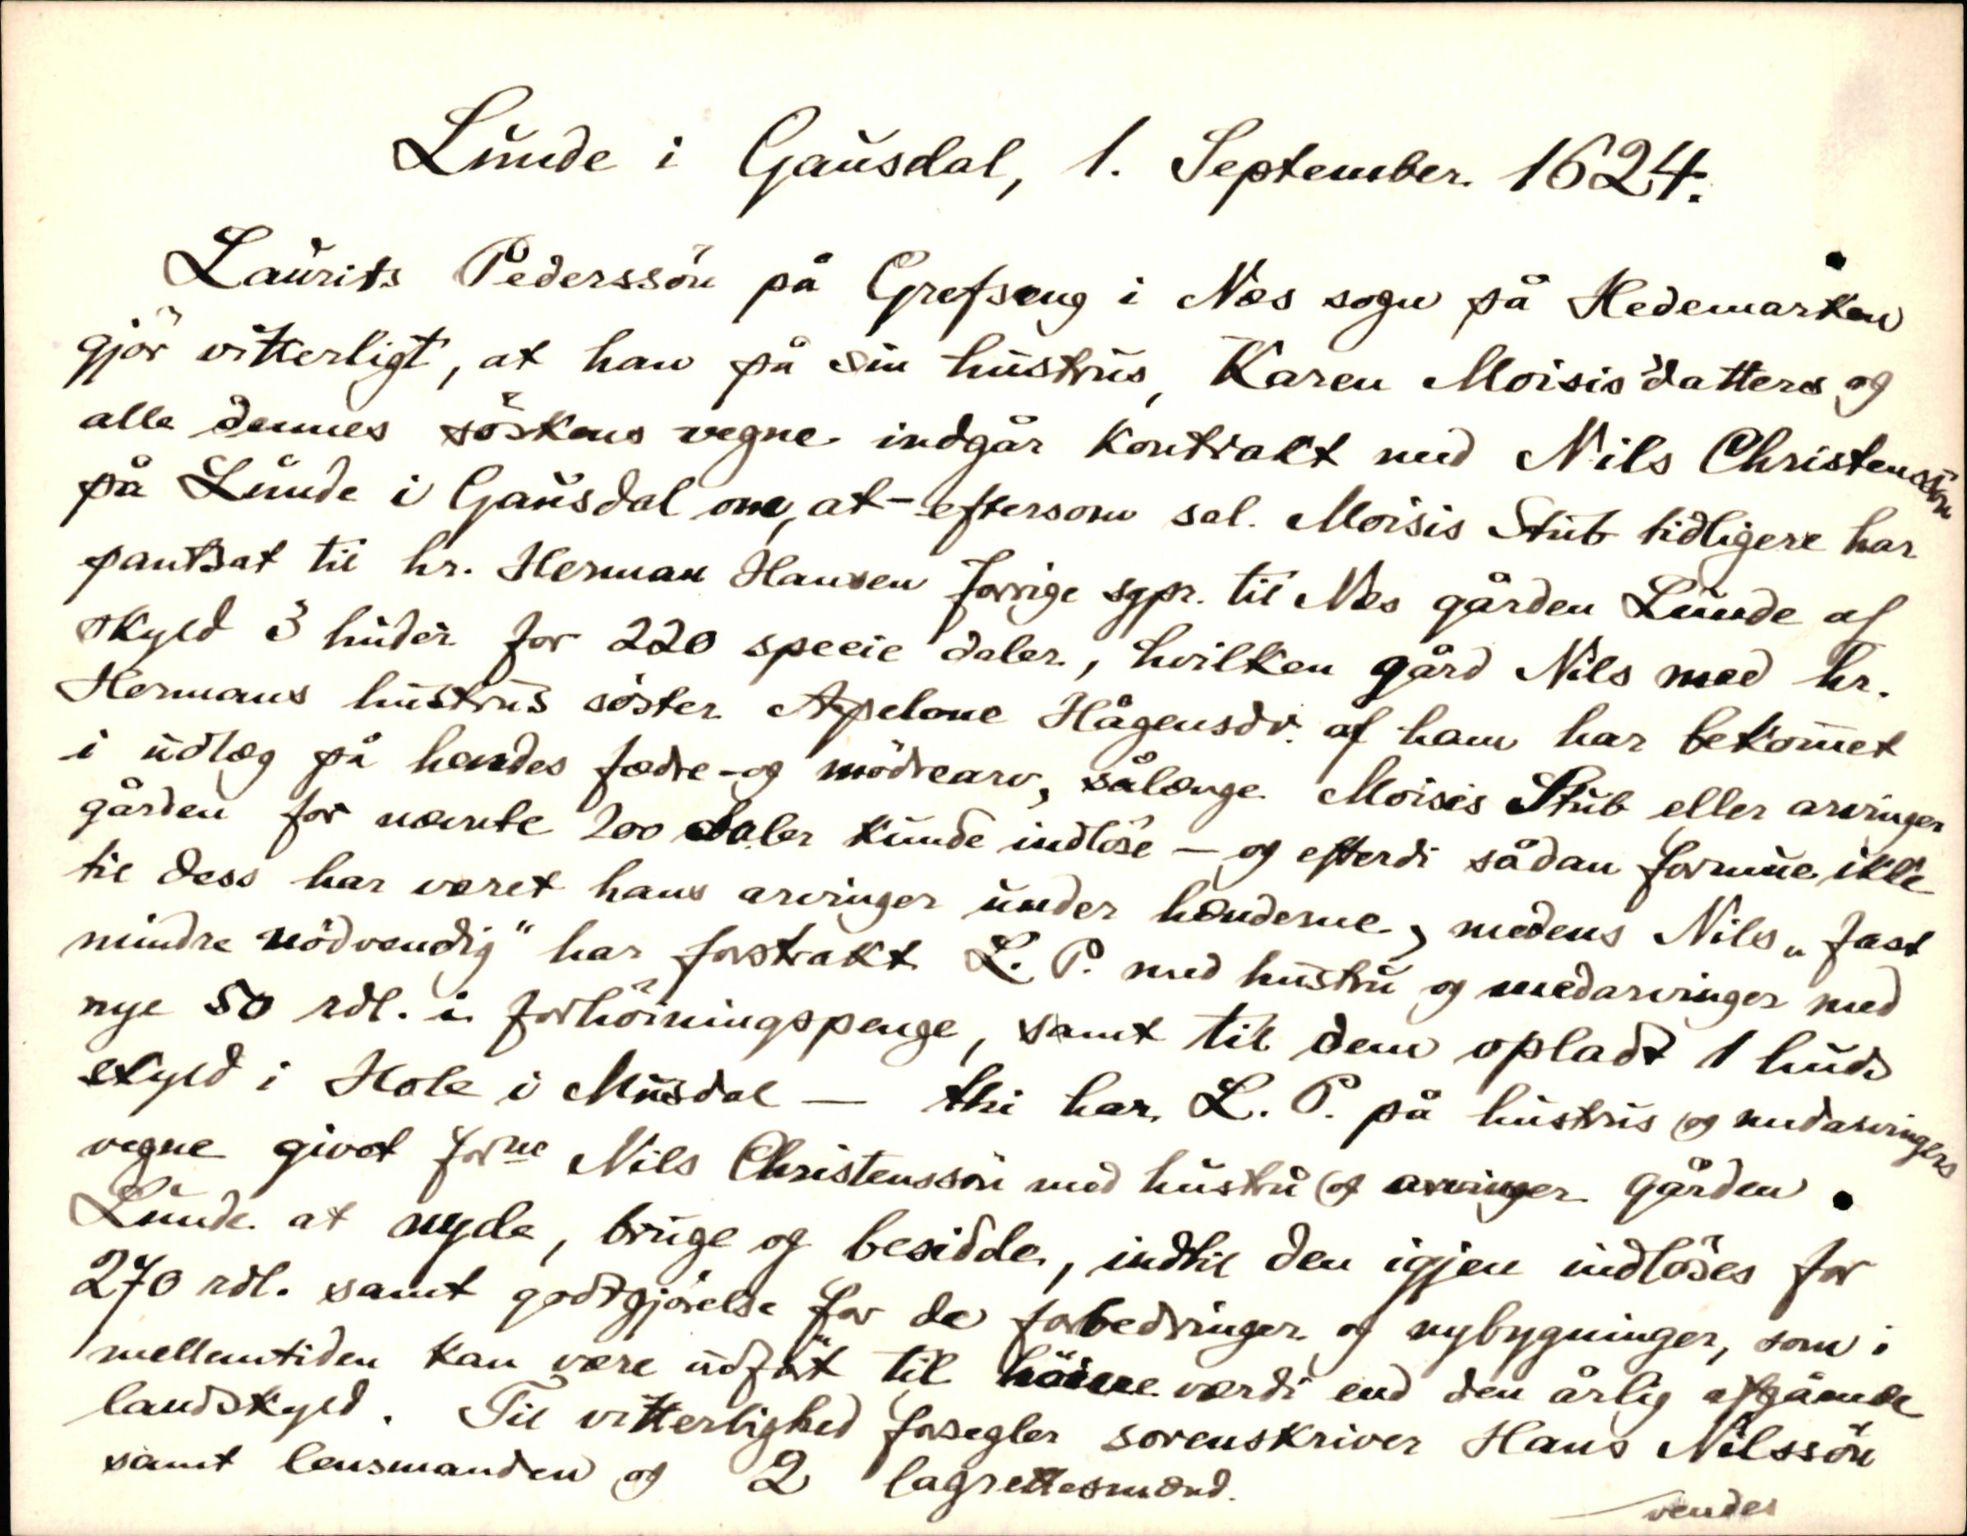 Lunde i Gausdal, 1. September 1624.
Laurits Pederssön på Grefseng i Nes sogn på Hedemarken
gjör vitterligt, at han på sin hustrus, Karen Moisisdatters og
alle dennes söskens vegne indgår kontrakt med Nils Christenssön
på Lunde i Gausdal om, at – eftersom sal. Moisis Stub tidligere har
pantsat til hr. Herman Hansen forrige sgpr. til Nes gården Lunde af
skyld 3 huder for 220 specie daler, hvilken gård Nils med hr.
Hermans hustrus söster Apelone Hågensdr. af ham har bekom̅et
i udlæg på hendes fædre- og mödrearv, sålænge Moisis Stub eller arvinger
gården for nævnte 200 daler kunde indlöse – og efterdi sådan formue ikke
til dess har været hans arvinger under hænderne, medens Nils „fast
mindre nödvendig“ har forstrakt L. P. med hustru og medarvinger med
nye 50 rdl. i forhöiningspenge, samt til dem opladt 1 huds
skyld i Hole i Musdal – thi har L. P. på hustrus og medarvingers
vegne givet forne Nils Christenssön med hustru og arvinger gården
Lunde at nyde, bruge og besidde, indtil den igjen indlöses for
270 rdl. samt godtgjörelse for de forbedringer og nybygninger, som i
mellemtiden kan være udfört til höiere værdi end den årlig afgående
landskyld. Til vitterlighed forsegler sorenskriver Hans Nilssön
samt lensmanden og 2 lagrettesmænd.
vendes